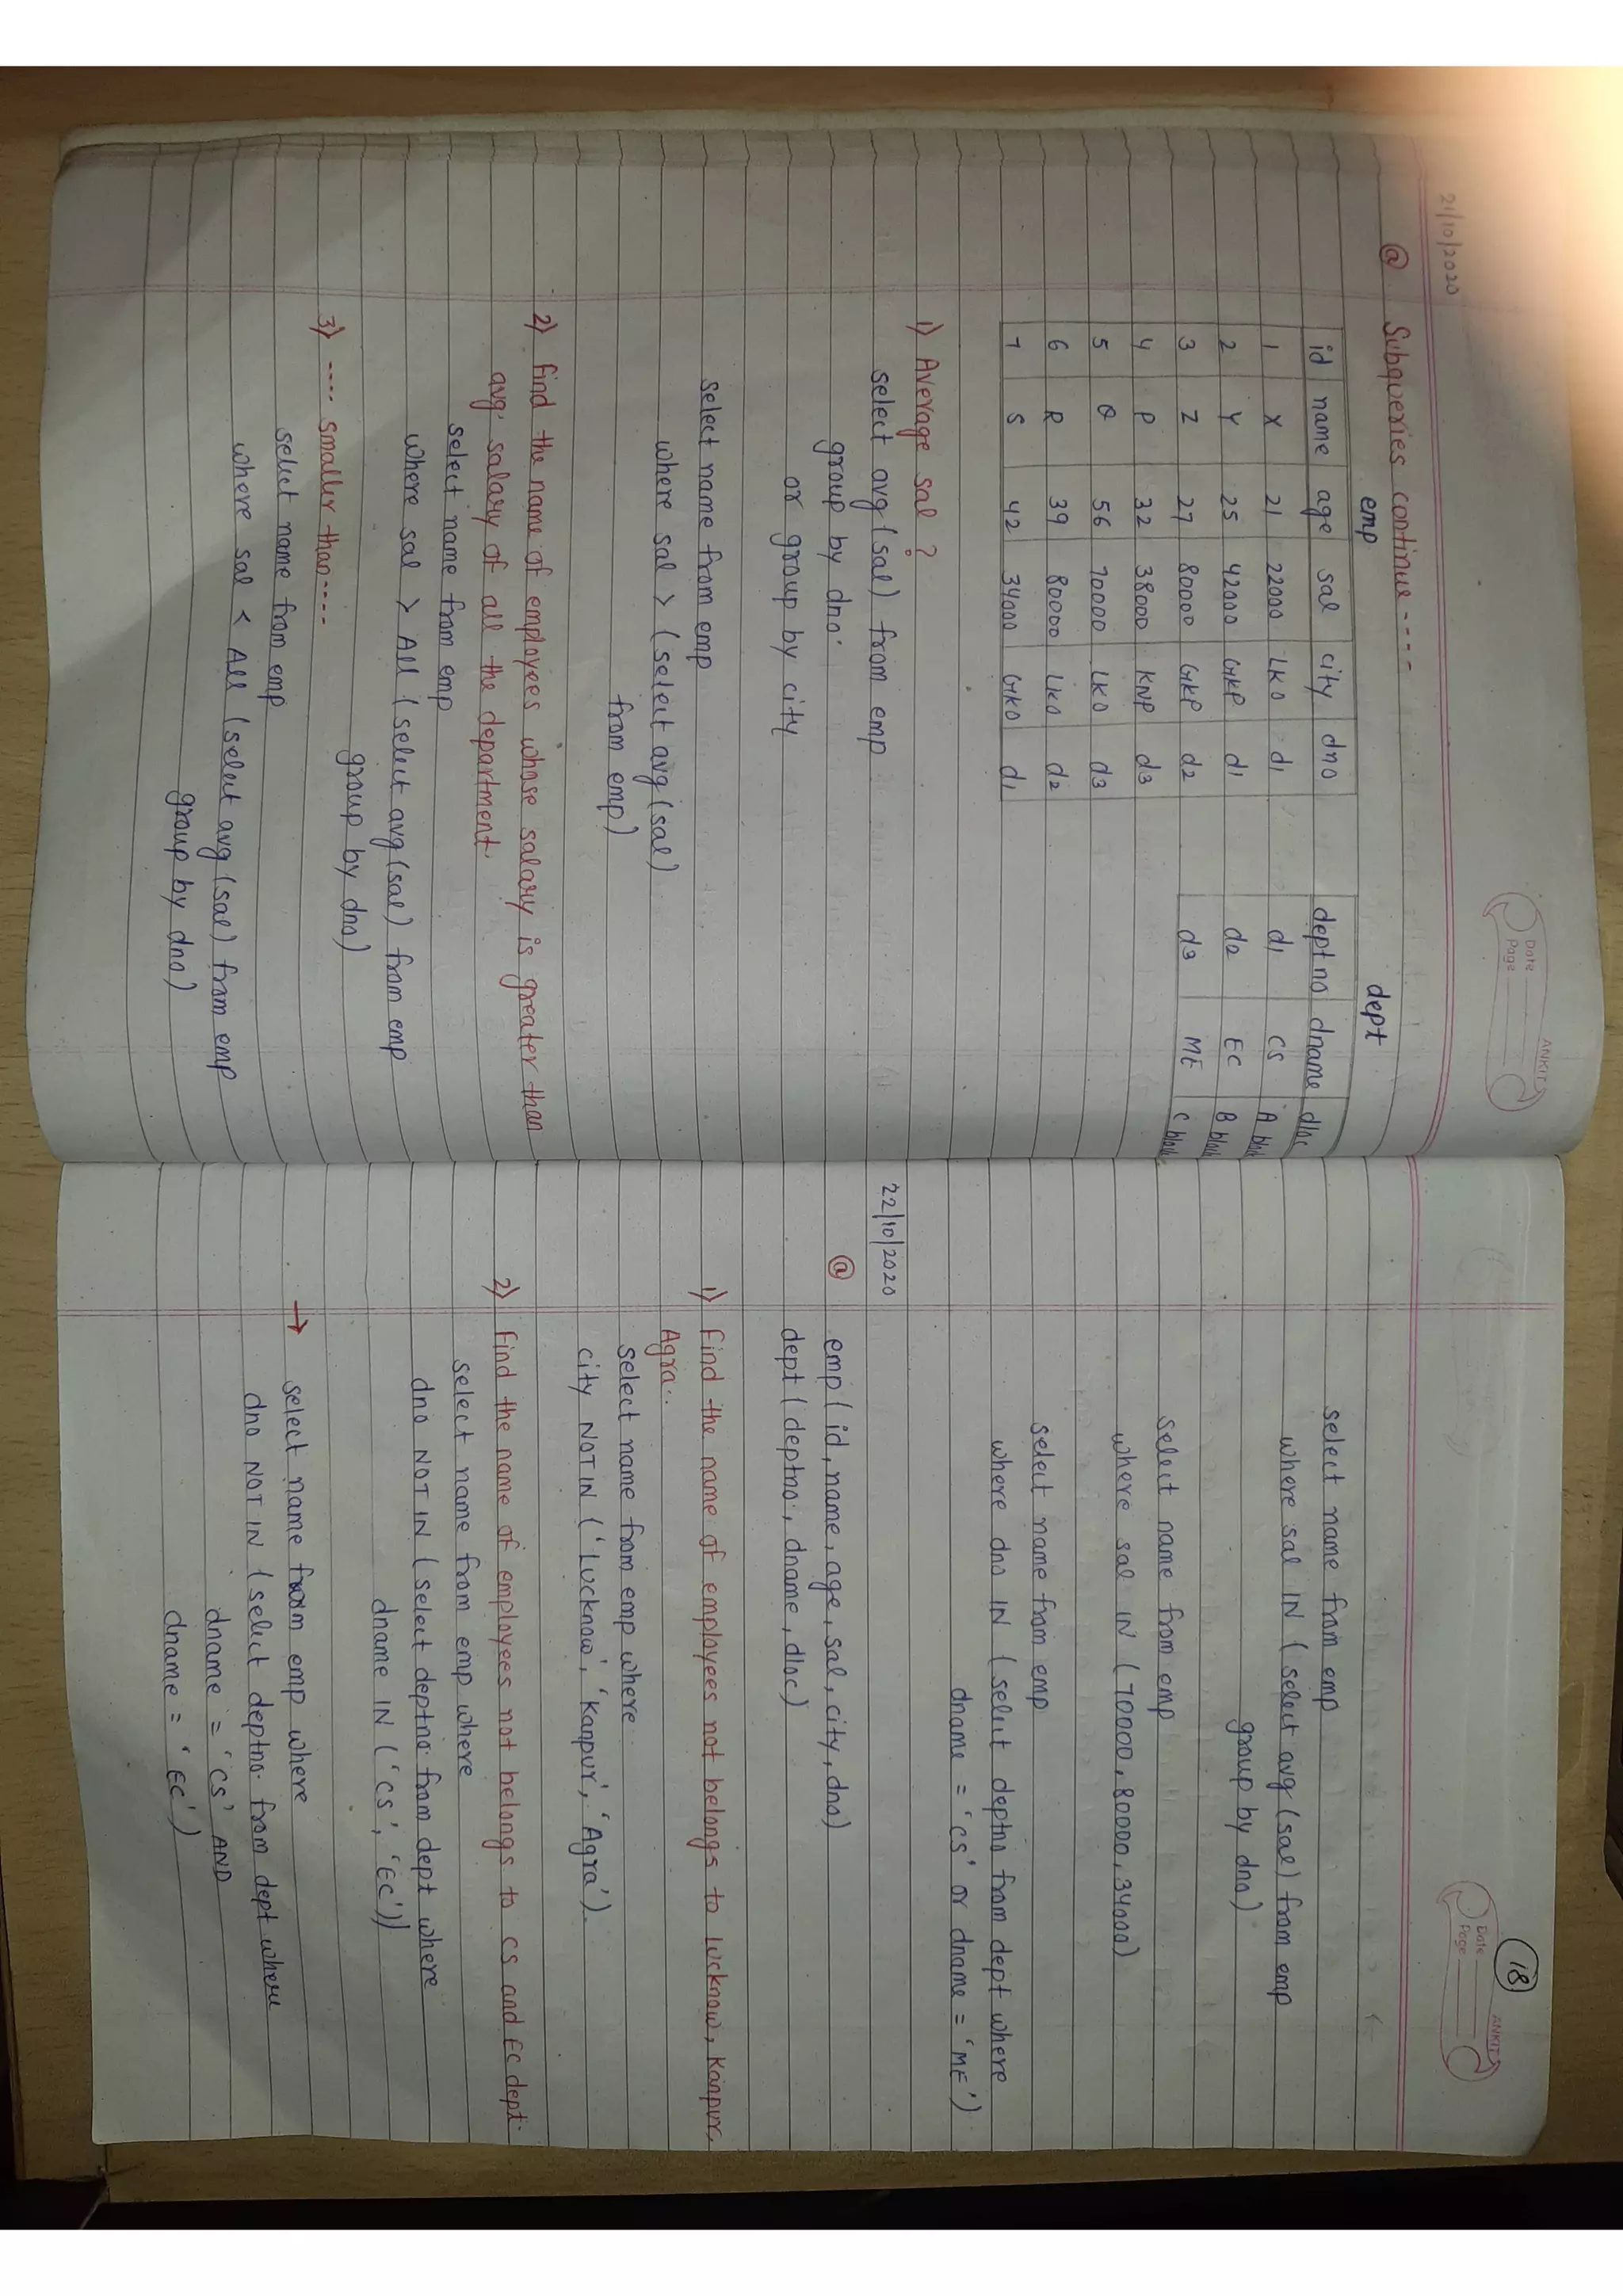 21/10/2020
Date
Page
ANKIT
@ Subqueries continue ----
emp
dept
id name age sal city dno
1 X 21 22000 LKO d1
2 Y 25 42000 GKP d1
3 Z 27 80000 GKP d2
4 P 32 38000 KNP d3
5 Q 56 70000 LKO d3
6 R 39 80000 LKO d2
7 S 42 34000 GKO d1
deptno dname dloc
d1 CS A block
d2 EC B block
d3 ME C block
1) Average sal ?
select avg (sal) from emp
group by dno.
or group by city
select name from emp
where sal > (select avg (sal)
from emp)
2) Find the name of employees whose salary is greater than
avg. salary of all the department.
select name from emp
where sal > All (select avg (sal) from emp
group by dno)
3) ---- smaller than ----
select name from emp
where sal < All (select avg (sal) from emp
group by dno)
18
Date
Page
ANKIT
select name from emp
where sal IN ( select avg (sal) from emp
group by dno)
select name from emp
where sal IN ( 70000, 80000, 34000)
select name from emp
where dno IN ( select deptno from dept where
dname = 'CS' or dname = 'ME')
22/10/2020
@ emp ( id, name, age, sal, city, dno)
dept ( deptno., dname, dloc)
1) Find the name of employees not belongs to lucknow, Kanpur,
Agra..
select name from emp where
city NOT IN ('Lucknow', 'Kanpur', 'Agra').
2) Find the name of employees not belongs to CS and EC dept.
select name from emp where
dno NOT IN ( select deptno. from dept where
dname IN ('CS', 'EC'))
→ select name from emp where
dno NOT IN (select deptno. from dept where
dname = 'CS' AND
dname = 'EC')